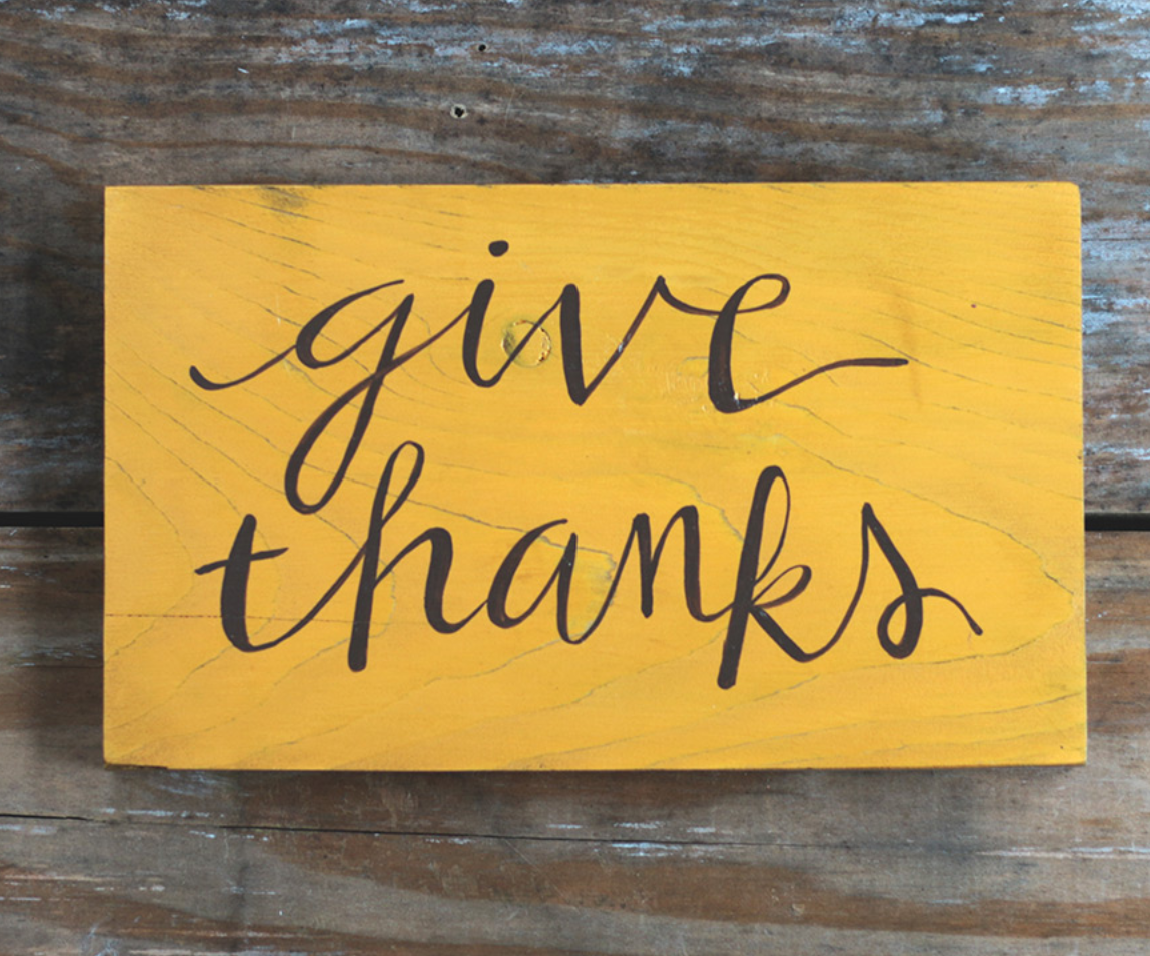 give
thanks